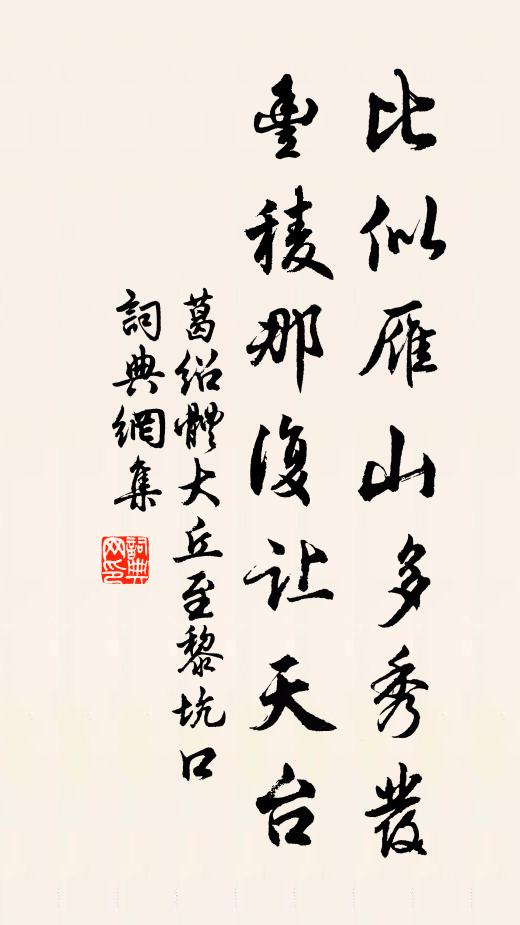 比似雁山多秀發
豐稜那復让天台
葛紹體大丘至黎坑口
詞典網集
詞典网印